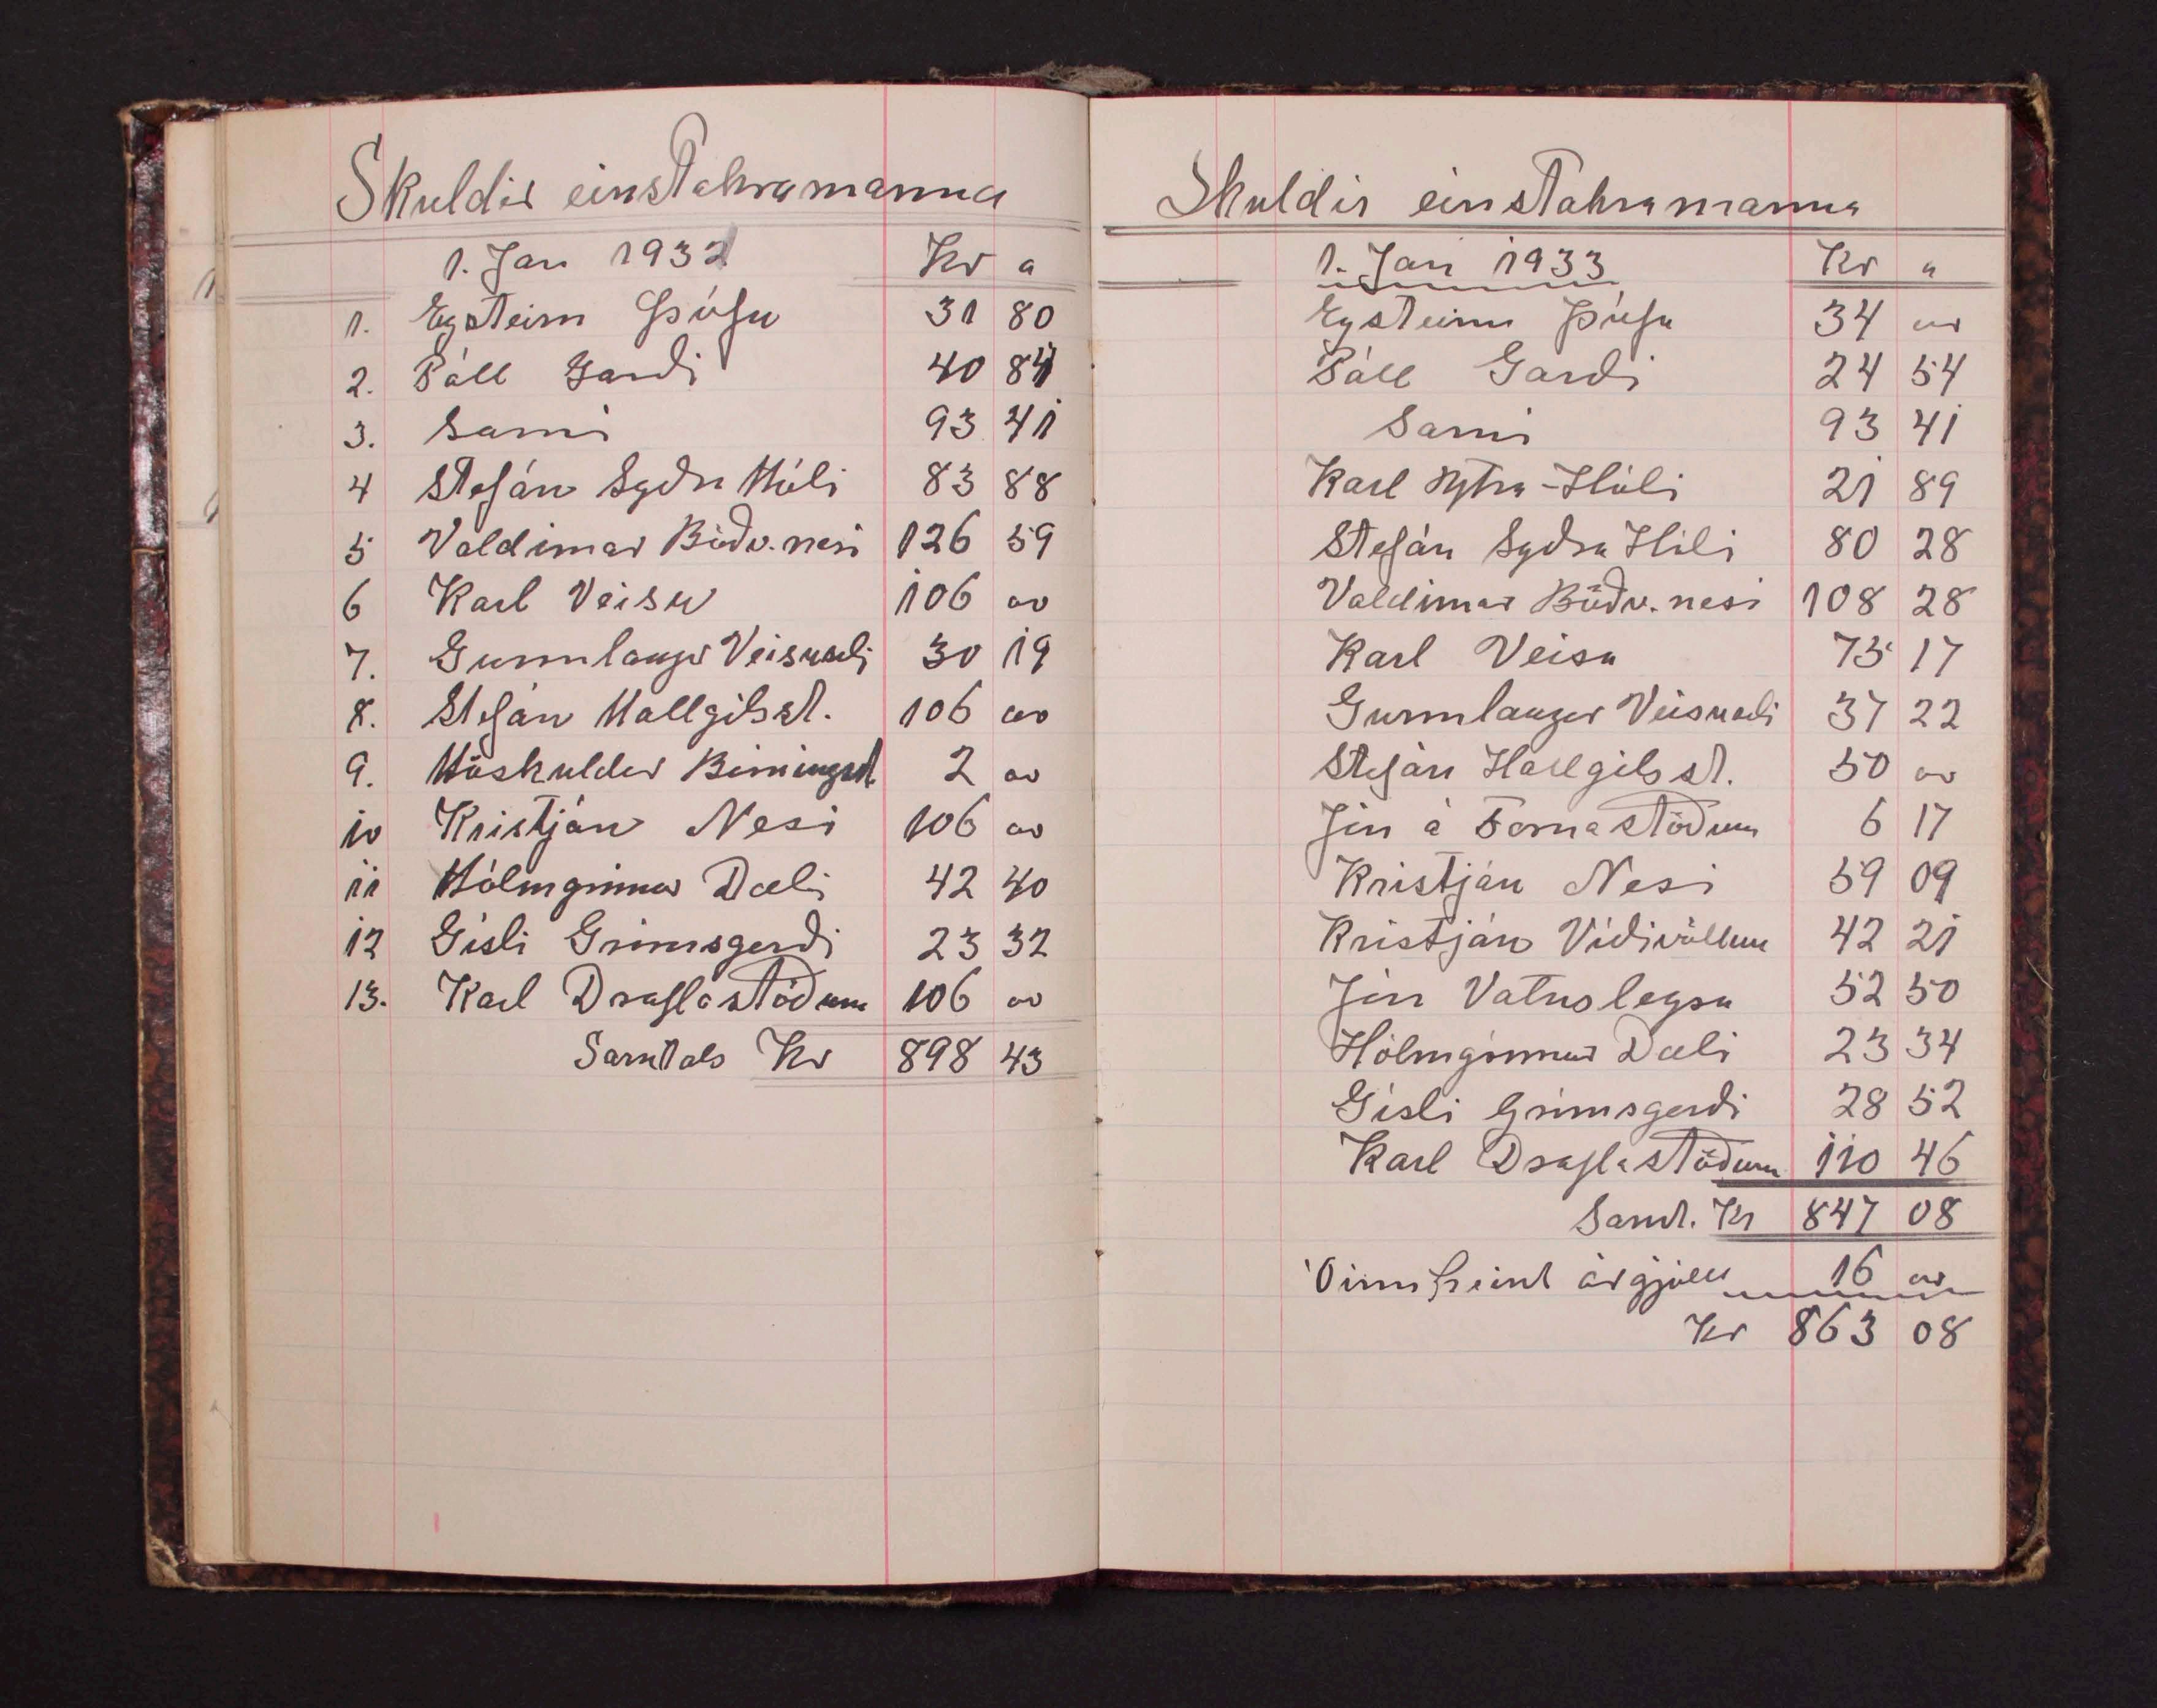 Skuldir einstakramanna
1. Jan 1932 Kr a
1. Eysteinn Þúfu 31 80
2. Páll Garði 40 84
3. Sami 93 41
4 Stefán Syðra Hóli 83 88
5 Valdimar Böðv.nesi 126 59
6 Karl Veisu 106 oo
7. Gunnlaugur Veisuseli 30 19
8. Stefán Hallgilsst. 106 oo
9. Höskuldur Birningsst. 2 oo
10 Kristján Nesi 106 oo
11 Hólmgrímur Dæli 42 40
12 Gísli Grímsgerði 23 32
13. Karl Draflastöðum 106 oo
Samtals Kr 898 43
Skuldir einstakramanna
1. Jan 1933 Kr a
Eysteinn Þúfu 34 oo
Páll Garði 24 54
Sami 93 41
Karl Ytra-Hóli 21 89
Stefán Syðra Hóli 80 28
Valdimar Böðv.nesi 108 28
Karl Veisu 75 17
Gunnlaugur Veisuseli 37 22
Stefán Hallgilsst. 50 oo
Jón á Fornastöðum 6 17
Kristján Nesi 59 09
Kristján Víðivöllum 42 21
Jón Vatnsleysu 52 50
Hólmgrímur Dæli 23 34
Gísli Grímsgerði 28 52
Karl Draflastöðum 110 46
Samt. Kr 847 08
Óinnheimt árgjöld 16 oo
Kr 863 08